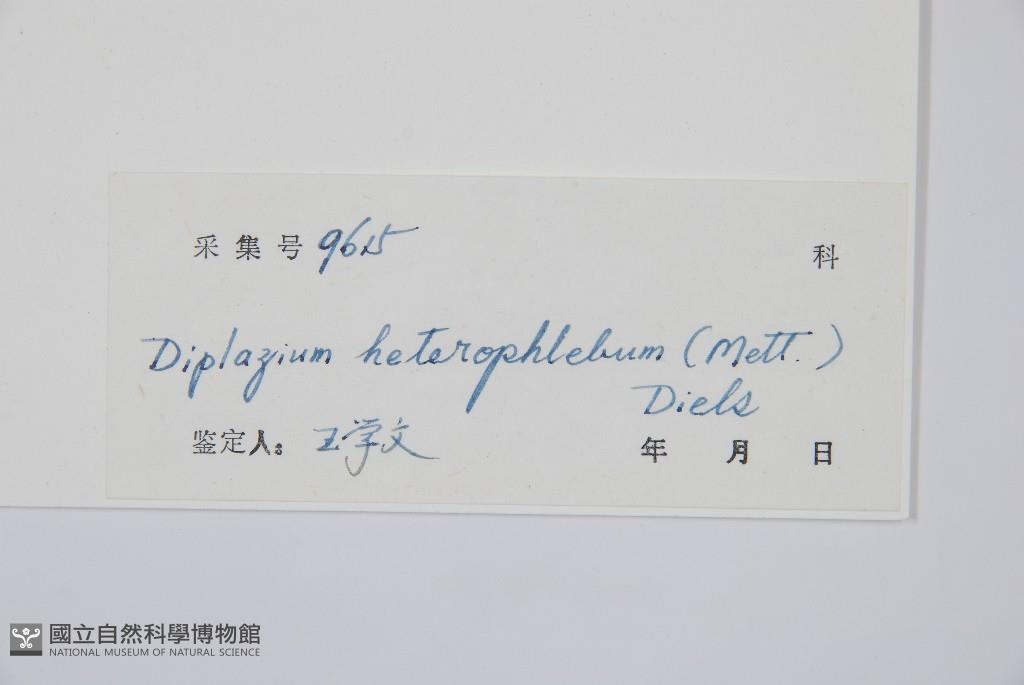 采集号 9615
科
Diplazium heterophlebum (Mett.)
Diels
鉴定人: 王学文 年 月 日
國立自然科學博物館
NATIONAL MUSEUM OF NATURAL SCIENCE